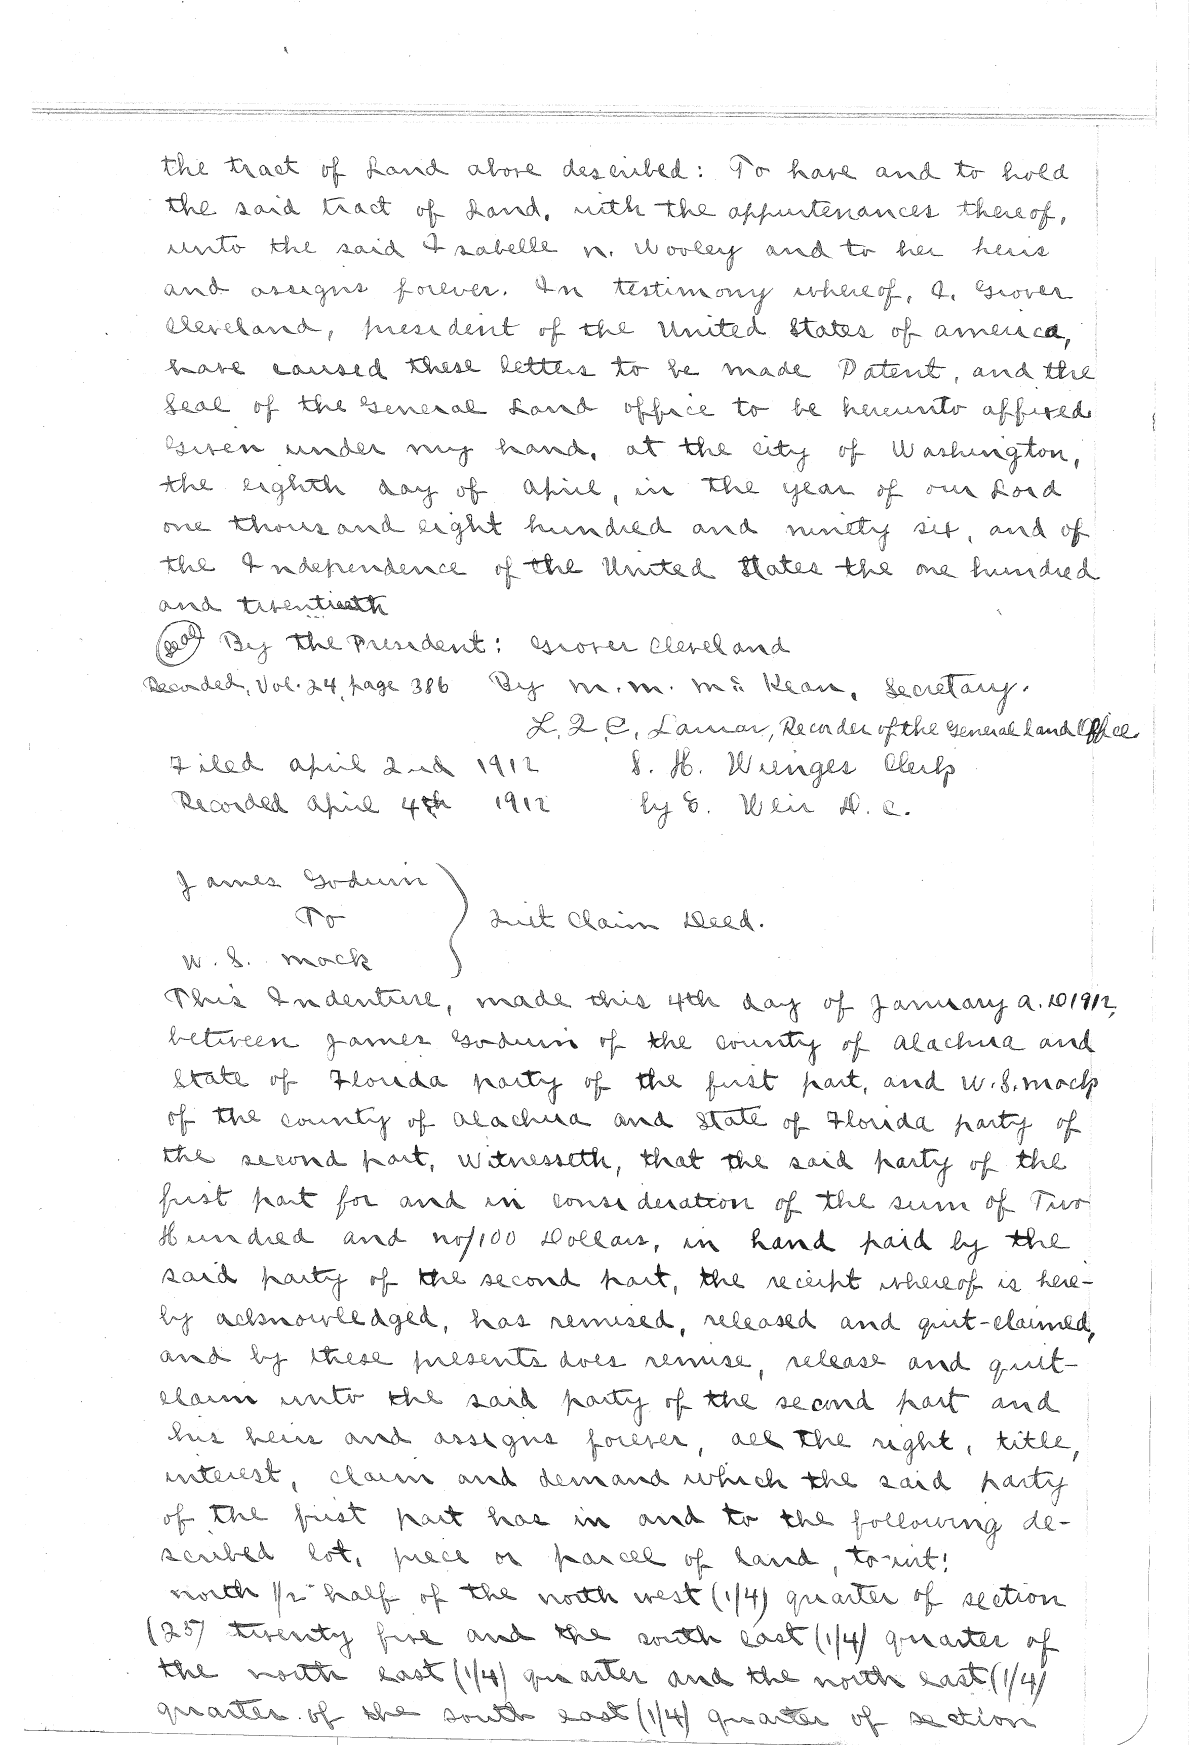 the tract of Land above described: To have and to hold
the said tract of Land, with the appurtenances thereof,
unto the said Isabelle N. Wooley and to her heirs
and assigns forever. In testimony whereof, I, Grover
Cleveland, president of the United States of america,
have caused these letters to be made Patent, and the
Seal of the General Land office to be hereunto affixed
Given under my hand, at the city of Washington,
the eighth day of april, in the year of our Lord
one thousand eight hundred and ninety six, and of
the Independence of the United States the one hundred
and twentieth
Seal By the President: Grover Cleveland
Recorded, Vol. 24, page 386 By M. M. McKean, Secretary.
L. Q. C. Lamar, Recorder of the General Land Office
Filed april 2nd 1912 S. H. Wienges Clerk
Recorded april 4th 1912 by E. Weir D. C.
James Godwin
To
Quit Claim Deed.
W. S. Mock
This Indenture, made this 4th day of January a. D 1912,
between James Godwin of the county of alachua and
State of Florida party of the first part, and W. S. Mock
of the county of alachua and State of Florida party of
the second part, Witnesseth, that the said party of the
first part for and in consideration of the sum of Two
Hundred and no/100 Dollars, in hand paid by the
said party of the second part, the receipt whereof is here-
by acknowledged, has remised, released and quit-claimed,
and by these presents does remise, release and quit-
claim unto the said party of the second part and
his heirs and assigns forever, all the right, title,
interest, claim and demand which the said party
of the first part has in and to the following de-
scribed lot, piece or parcel of land, to-wit:
north 1/2 half of the north west (1/4) quarter of section
(25) twenty five and the south east (1/4) quarter of
the north east (1/4) quarter and the north east (1/4)
quarter of the south east (1/4) quarter of section